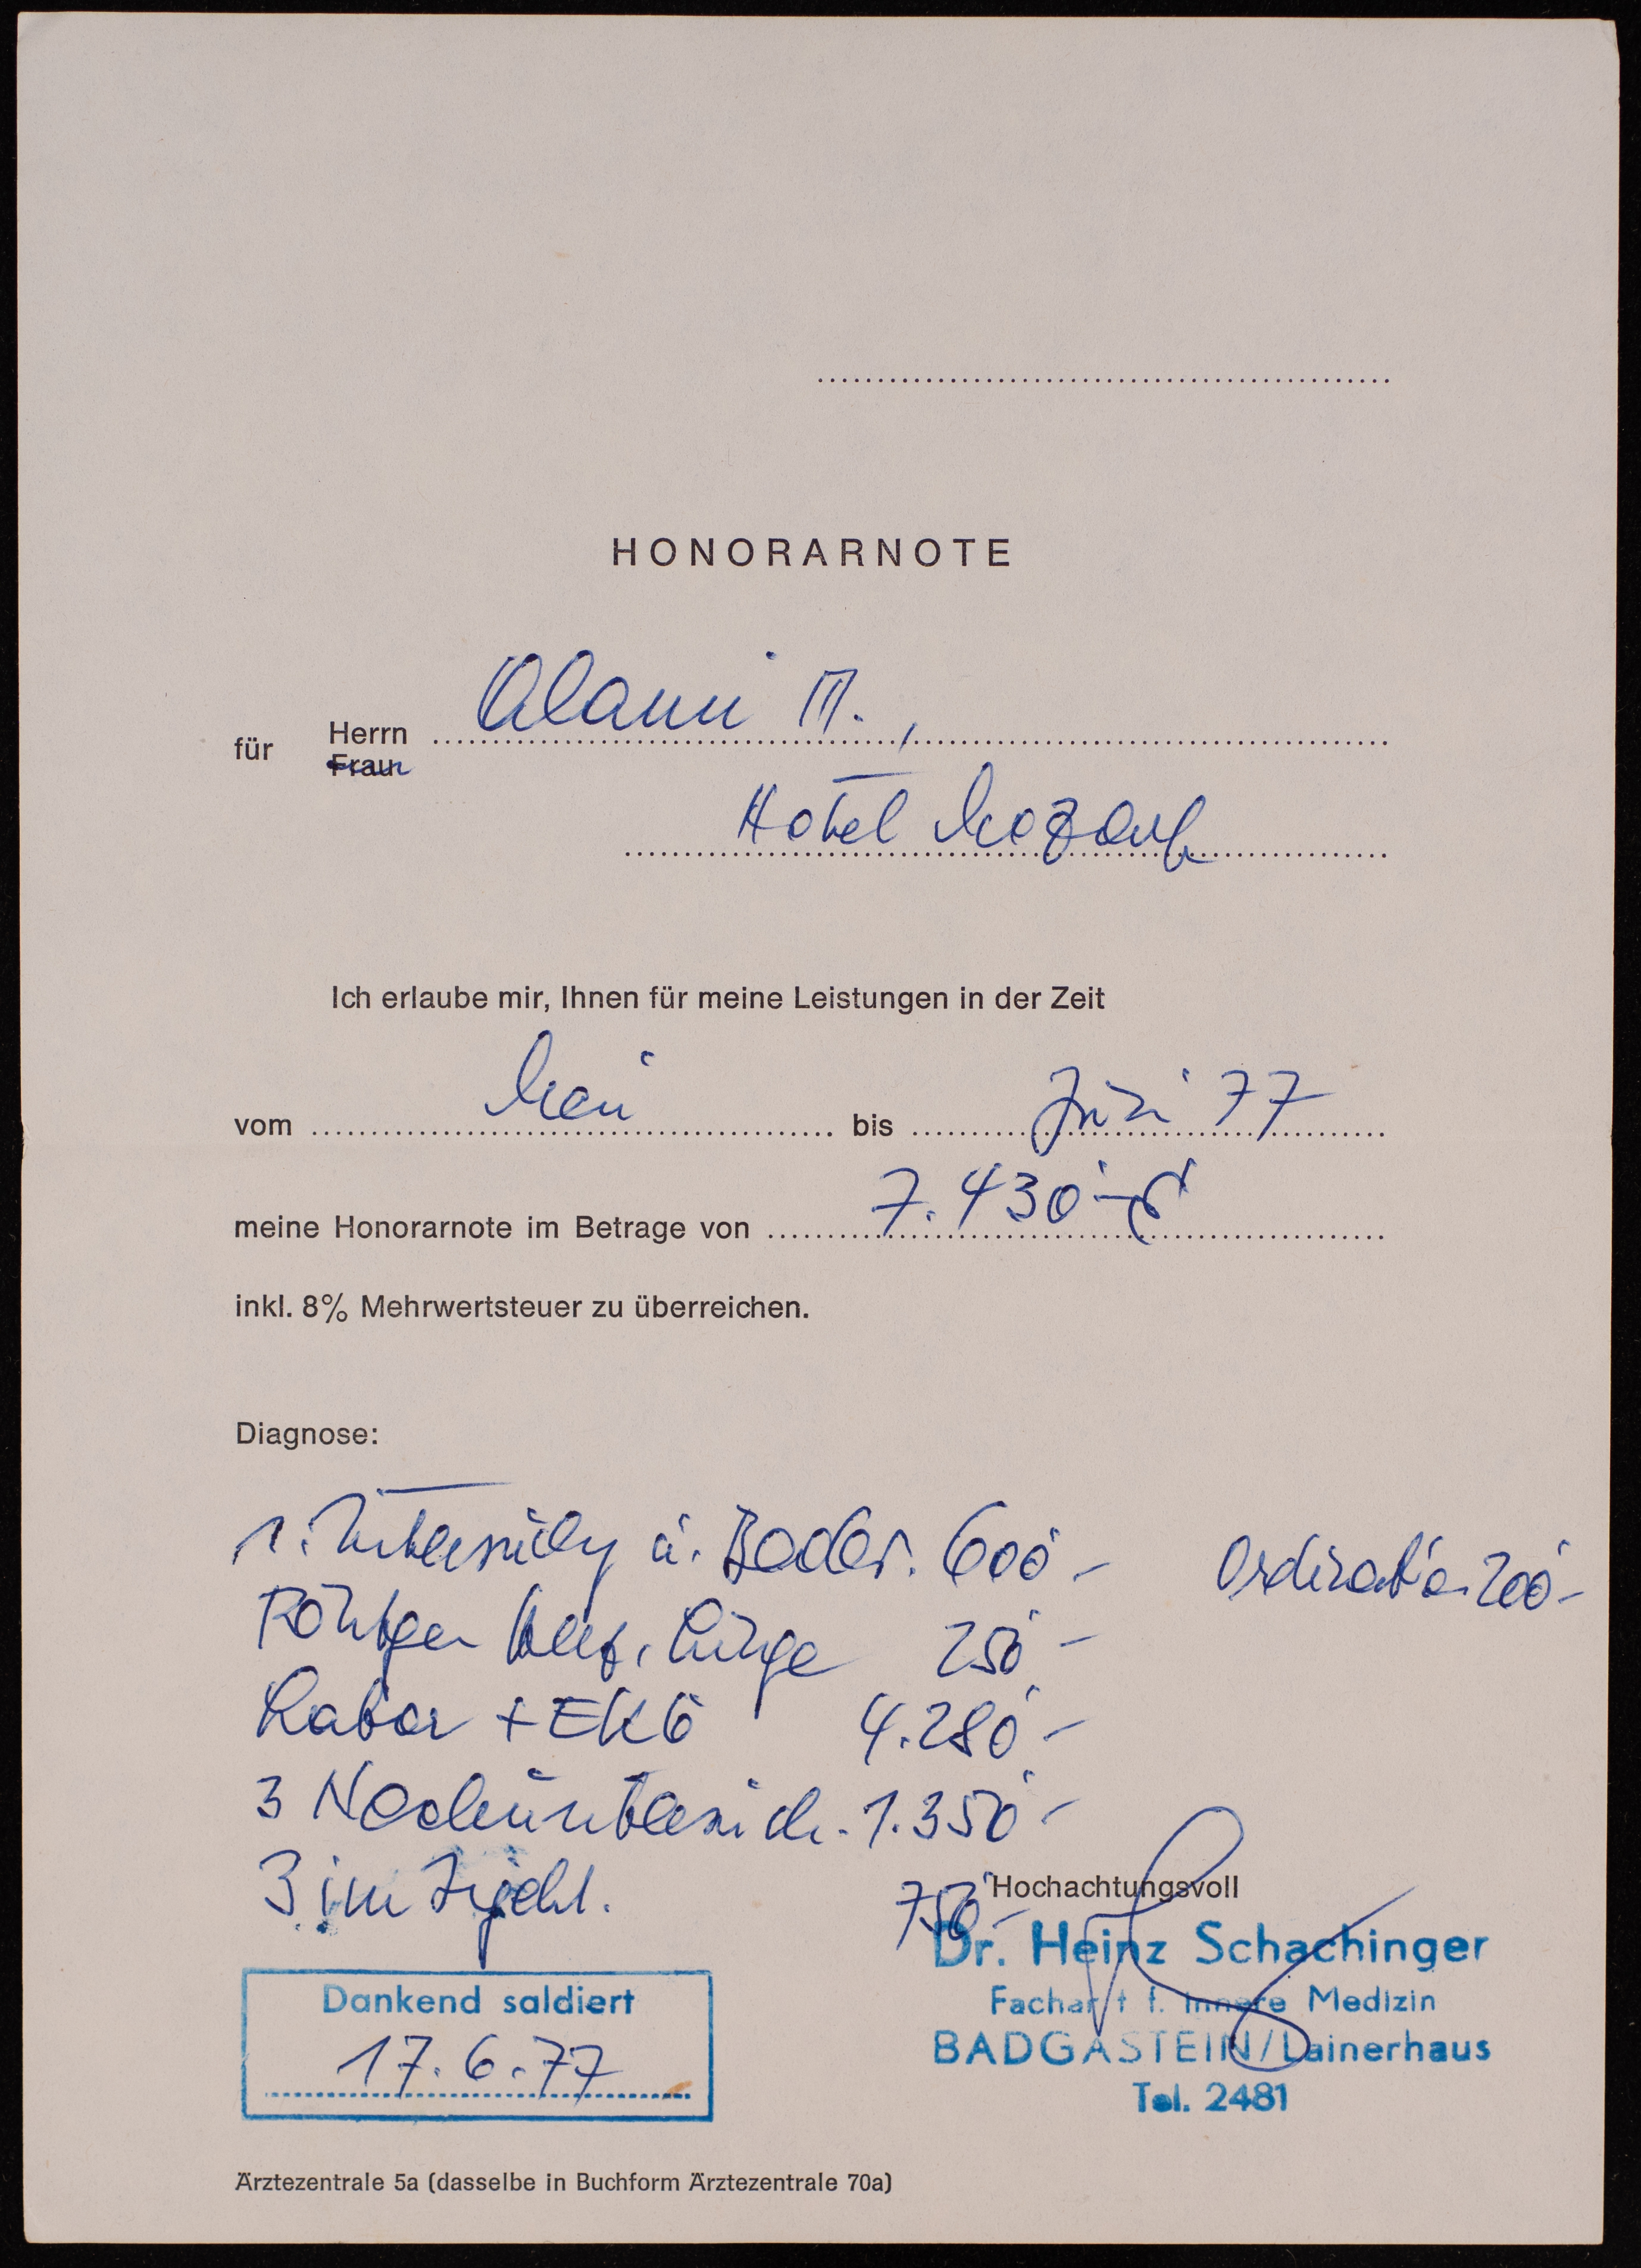 HONORARNOTE
für Herrn Alami M.,
Frau
Hotel Mozart
Ich erlaube mir, Ihnen für meine Leistungen in der Zeit
vom Mai bis Juni 77
meine Honorarnote im Betrage von 7.430.- S
inkl. 8% Mehrwertsteuer zu überreichen.
Diagnose:
1. Untersuchg u. 600.- Ordination 200.-
Röntgen Herz, Lunge 250.-
Labor + EKG 4.280.-
3 Nachuntersuch. 1.350.-
3 im Injekt. 750.-
Hochachtungsvoll
Dr. Heinz Schachinger
Facharzt f. Innere Medizin
BADGASTEIN/Lainerhaus
Tel. 2481
Dankend saldiert
17.6.77
Ärztezentrale 5a (dasselbe in Buchform Ärztezentrale 70a)